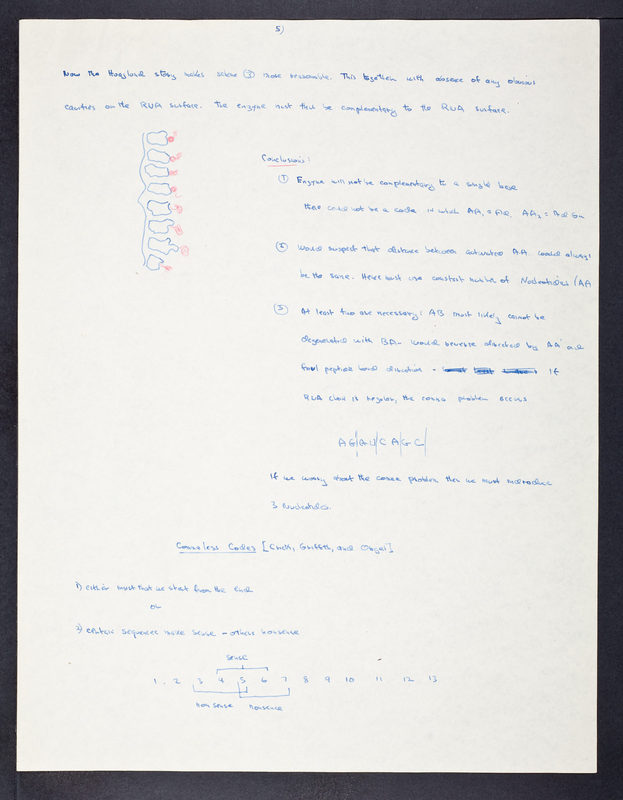 5)
Now the Hoagland story makes scheme ③ more reasonable. This together with absence of any obvious
cavities on the RNA surface. The enzyme must thus be complementary to the RNA surface.
Conclusions:
① Enzyme will not be complementary to a single base
there could not be a code in which AA₁ = Ad. AA₂ = Ad Gu
② Would suspect that distance between activated AA would always
be the same. Hence must use constant number of Nucleotides (AA
③ At least two are necessary: AB most likely cannot be
degenerated with BA - would reverse direction by AA and
peptide bond direction - If
RNA chain is regular, the comma problem occurs
AG|GU|CA|GC|
If we worry about the comma problem then we must introduce
3 Nucleotides.
Commaless Codes [Crick, Griffith, and Orgel]
1) either must that we start from the end
or
2) certain sequences make sense - others nonsense
sense
1 . 2 3 4 5 6 7 8 9 10 11 12 13
nonsense nonsense